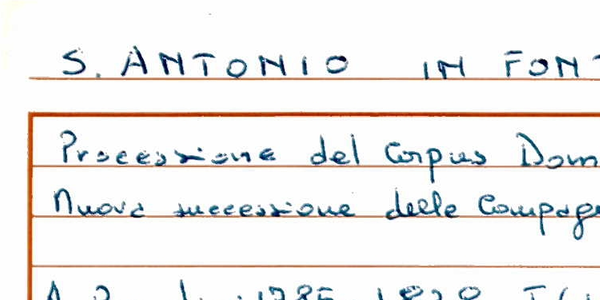 S. ANTONIO IN FONT
Processione del Corpus Dom
Nuova successione delle Compag
1785 1820